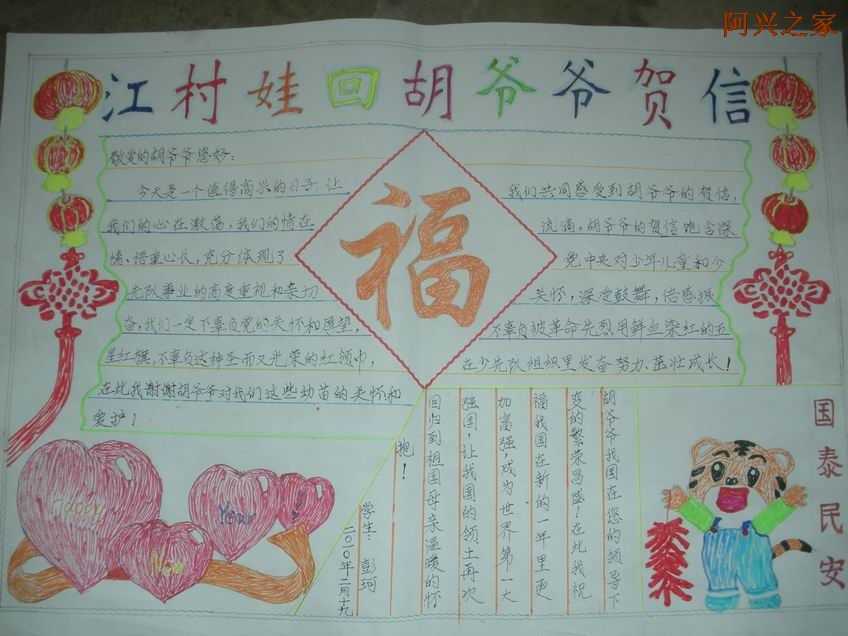 阿兴之家
江村娃回胡爷爷贺信
敬爱的胡爷爷您好:
今天是一个值得高兴的日子 让
我们共同感受到胡爷爷的贺信,
我们的心在激荡,我们的情在
流淌,胡爷爷的贺信饱含深
情、语重心长,充分体现了
党中央对少年儿童和少
先队事业的高度重视和亲切
关怀,深受鼓舞,倍感振
奋,我们一定不辜负党的关怀和愿望,
不辜负被革命先烈用鲜血染红的五
星红旗,不辜负这神圣而又光荣的红领巾,
在少先队组织里发奋努力、茁壮成长!
在此我谢谢胡爷爷对我们这些幼苗的关怀和
爱护!
福
胡爷爷我国在您的领导下
变的繁荣昌盛!在此我祝
福我国在新的一年里更
加高强,成为世界第一大
强国,让我国的领土再次
回归到祖国母亲温暖的怀
抱!
学生:彭珂
二〇一〇年二月十九
Happy
New
Year
!
国泰民安